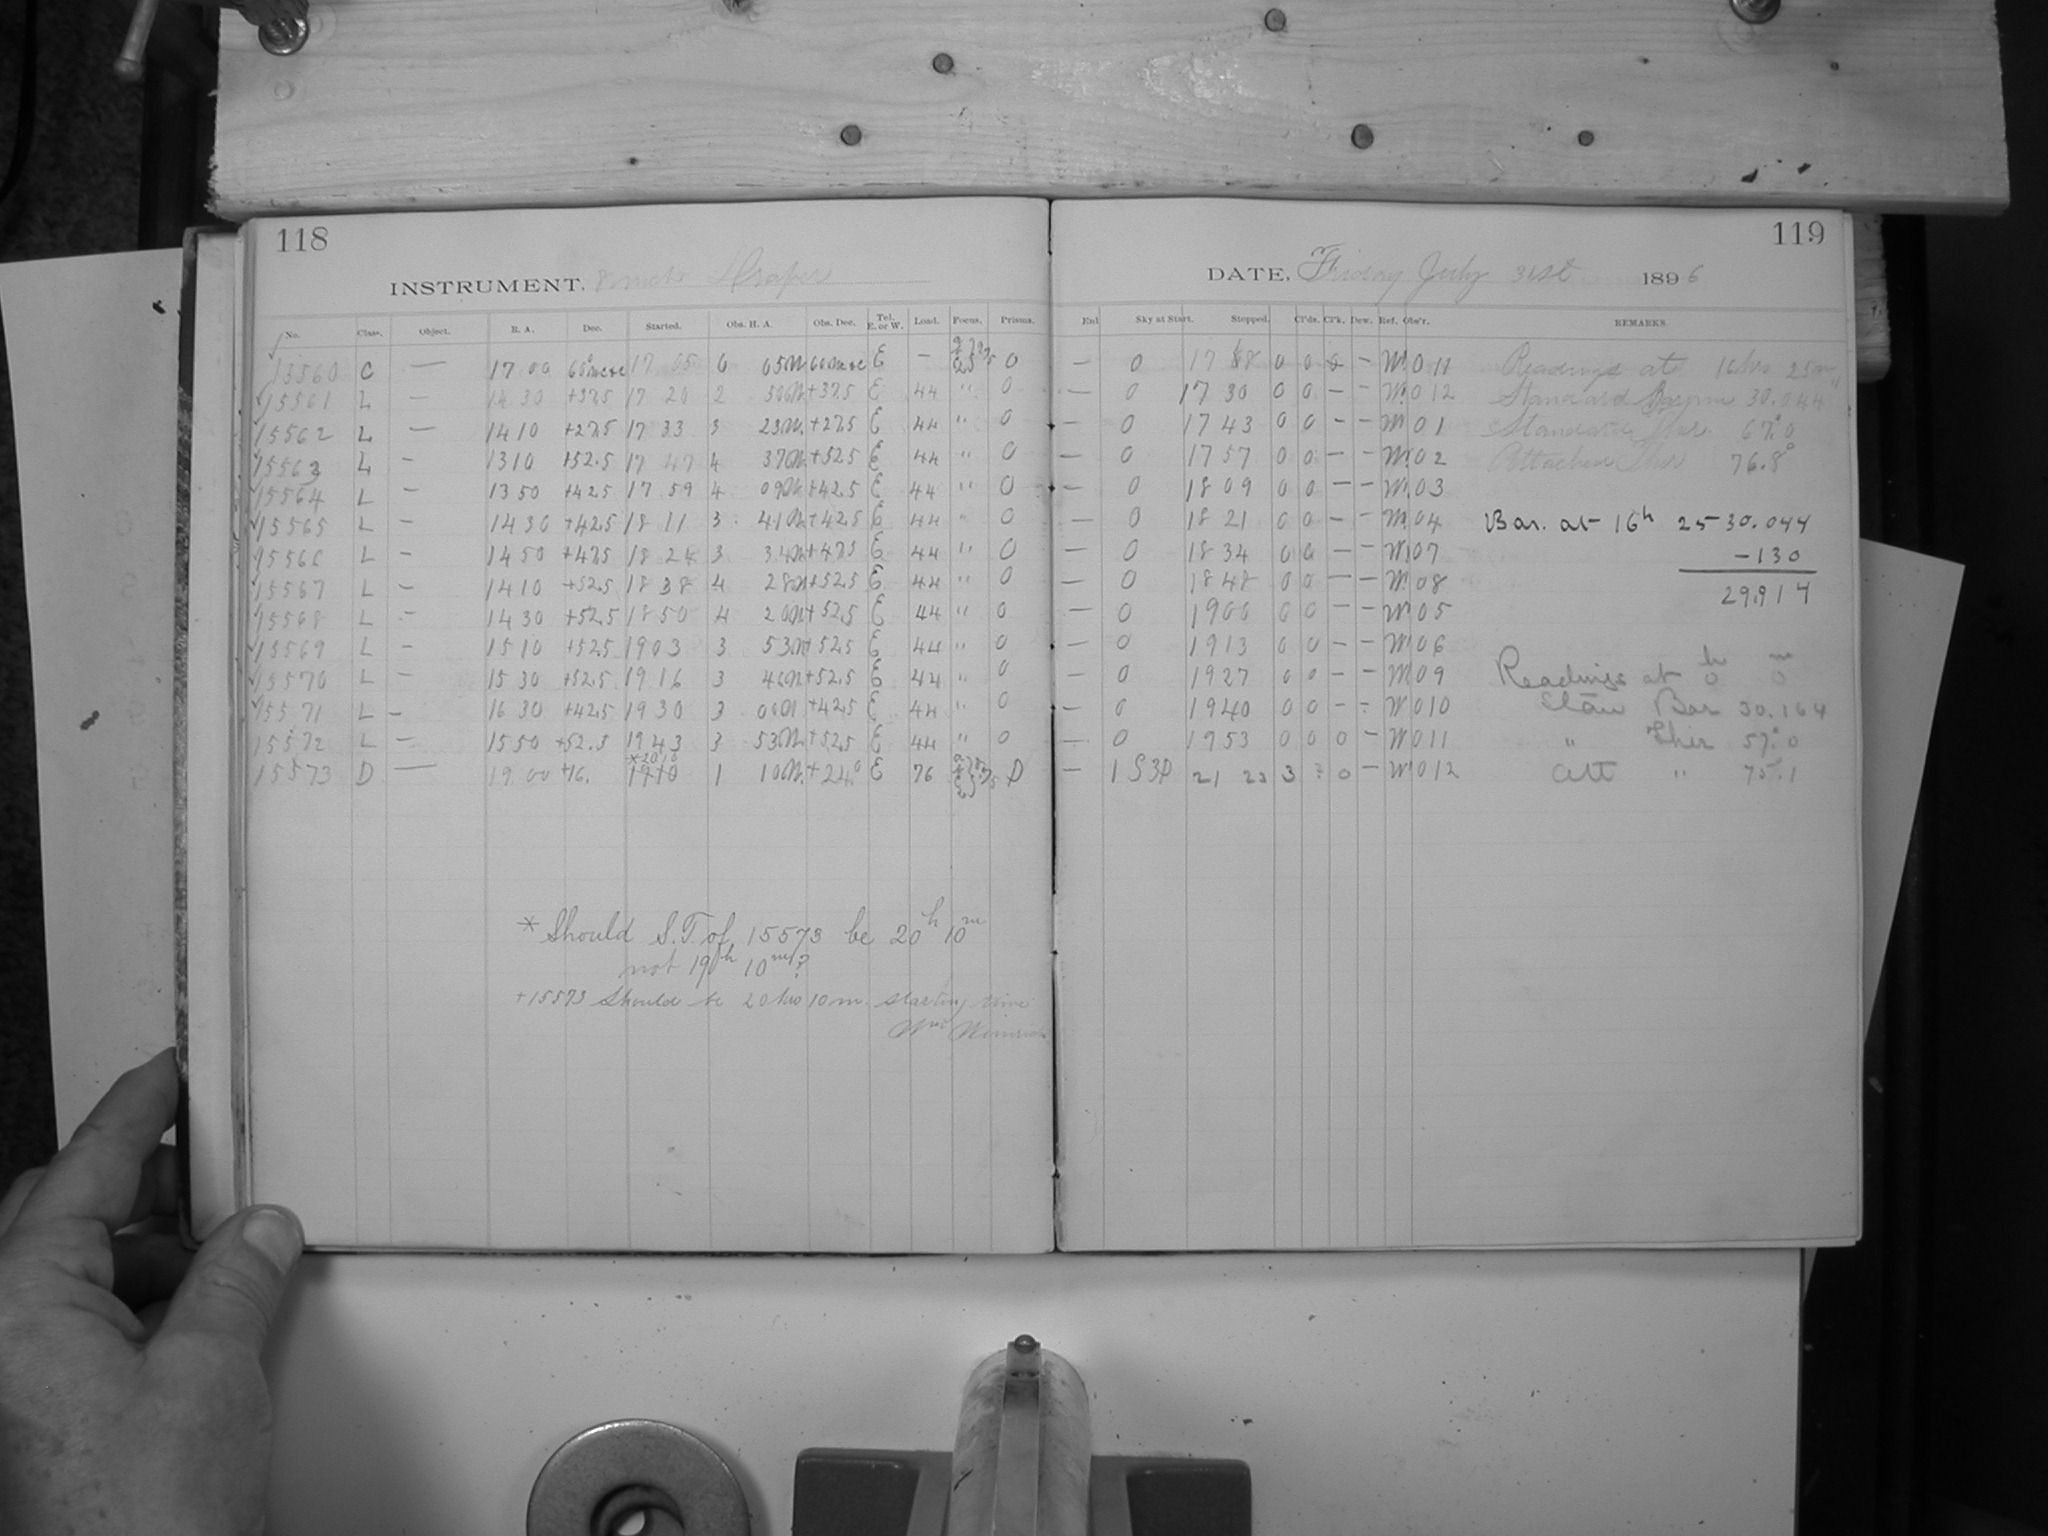 118
INSTRUMENT. 8 inch Draper
No. Class. Object. R. A. Dec. Started. Obs. H. A. Obs. Dec. Tel. E. or W. Load. Focus. Prisms.
15560 C — 17 00 17 05 0 05 E — 0
15561 L — 14 30 +37.5 17 20 2 50 +37.5 E 44 " 0
15562 L — 14 10 +27.5 17 33 3 23 +27.5 E 44 " 0
15563 L — 13 10 +52.5 17 47 4 37 +52.5 E 44 " 0
15564 L — 13 50 +42.5 17 59 4 09 +42.5 E 44 " 0
15565 L — 14 30 +42.5 18 11 3 41 +42.5 E 44 " 0
15566 L — 14 50 +47.5 18 24 3 34 +47.5 E 44 " 0
15567 L — 14 10 +52.5 18 38 4 28 +52.5 E 44 " 0
15568 L — 14 30 +52.5 18 50 4 20 +52.5 E 44 " 0
15569 L — 15 10 +52.5 19 03 3 53 +52.5 E 44 " 0
15570 L — 15 30 +52.5 19 16 3 46 +52.5 E 44 " 0
15571 L — 16 30 +42.5 19 30 3 00 +42.5 E 44 " 0
15572 L — 15 50 +52.5 19 43 3 53 +52.5 E 44 " 0
*20 10
15573 D — 19 00 +16. 19 10 1 10 +24.0 E 76 D
* Should S.T. of 15573 be 20h 10m
not 19h 10m?
+15573 Should be 20 hrs 10 m. starting time
Wm
119
DATE, Friday July 31st 1896
Enl Sky at Start. Stopped. Cl'ds. Cl'k. Dew. Ref. Obs'r. REMARKS.
— 0 17 0 0 — W. 011 Readings at 16 hrs 25 m
— 0 17 30 0 0 — — W. 012 Standard 30.044
— 0 17 43 0 0 — — W. 01 Standard Ther. 67.0
— 0 17 57 0 0 — — W. 02 Attached Ther 76.8°
— 0 18 09 0 0 — — W. 03
— 0 18 21 0 0 — — W. 04 Bar. at 16h 25 30.044
— 0 18 34 0 0 — — W. 07 -130
— 0 18 48 0 0 — — W. 08 29.914
— 0 19 00 0 0 — — W. 05
— 0 19 13 0 0 — — W. 06
— 0 19 27 0 0 — — W. 09 Readings at 0h 0m
— 0 19 40 0 0 — — W. 010 Stan Bar 30.164
— 0 19 53 0 0 0 — W. 011 " Ther 57.0
— 1 S3P 21 23 3 0 — W. 012 Att " 75.1